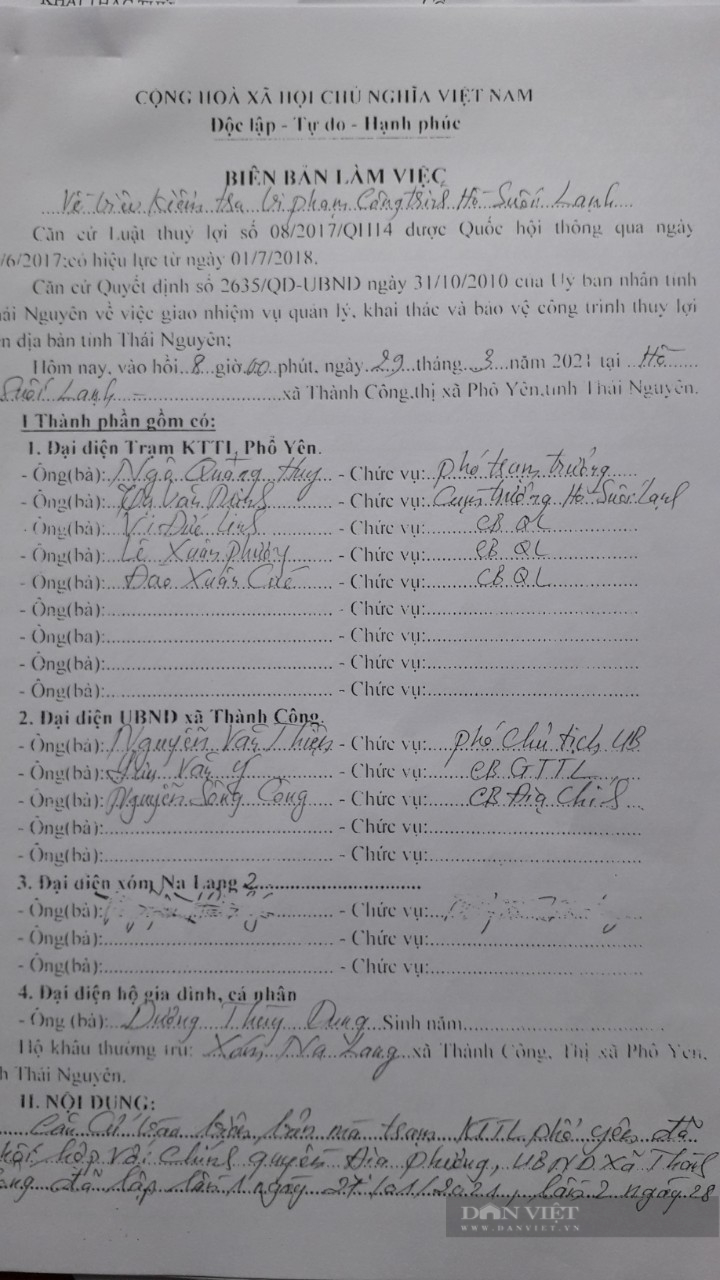 CỘNG HOÀ XÃ HỘI CHỦ NGHĨA VIỆT NAM
Độc lập - Tự do - Hạnh phúc
BIÊN BẢN LÀM VIỆC
Về việc kiểm tra vi phạm Công trình Hồ Suối Lạnh
Căn cứ Luật thuỷ lợi số 08/2017/QH14 được Quốc hội thông qua ngày
/6/2017;có hiệu lực từ ngày 01/7/2018.
Căn cứ Quyết định số 2635/QD-UBND ngày 31/10/2010 của Uỷ ban nhân tỉnh
ái Nguyên về việc giao nhiệm vụ quản lý, khai thác và bảo vệ công trình thuỷ lợi
n địa bàn tỉnh Thái Nguyên;
Hôm nay, vào hồi 8 giờ 00 phút, ngày 29 tháng 3 năm 2021 tại Hồ
Suối Lạnh - xã Thành Công,thị xã Phổ Yên,tỉnh Thái Nguyên.
I Thành phần gồm có:
1. Đại diện Trạm KTTL Phổ Yên.
- Ông(bà): Ngô Quảng Huy - Chức vụ: phó trạm trưởng
- Ông(bà): Văn - Chức vụ: Cụm trưởng Hồ Suối Lạnh
- Ông(bà): Vi Đức - Chức vụ: CB QL
- Ông(bà): Lê Xuân Phương - Chức vụ: CB QL
- Ông(bà): Đào Xuân - Chức vụ: CB QL
- Ông(bà): - Chức vụ:
- Ông(bà): - Chức vụ:
- Ông(bà): - Chức vụ:
- Ông(bà): - Chức vụ:
2. Đại diện UBND xã Thành Công.
- Ông(bà): Nguyễn Văn Thiện - Chức vụ: phó Chủ tịch UB
- Ông(bà): Văn Ý - Chức vụ: CB GTTL
- Ông(bà): Nguyễn Sông Công - Chức vụ: CB Địa Chính
- Ông(bà): - Chức vụ:
- Ông(bà): - Chức vụ:
3. Đại diện xóm Na Lang 2
- Ông(bà): - Chức vụ:
- Ông(bà): - Chức vụ:
- Ông(bà): - Chức vụ:
4. Đại diện hộ gia đình, cá nhân
- Ông (bà): Dương Thùy Dung Sinh năm
Hộ khẩu thường trú: Xóm Na Lang xã Thành Công, Thị xã Phổ Yên,
h Thái Nguyên.
II. NỘI DUNG:
Căn cứ vào biên bản mà trạm KTTL phổ yên đã
hối hợp với Chính quyền Địa phương, UBND Xã Thành
ông đã lập lần 1 ngày 27/01/2021, lần 2 ngày 28
DÂN VIỆT
WWW.DANVIET.VN